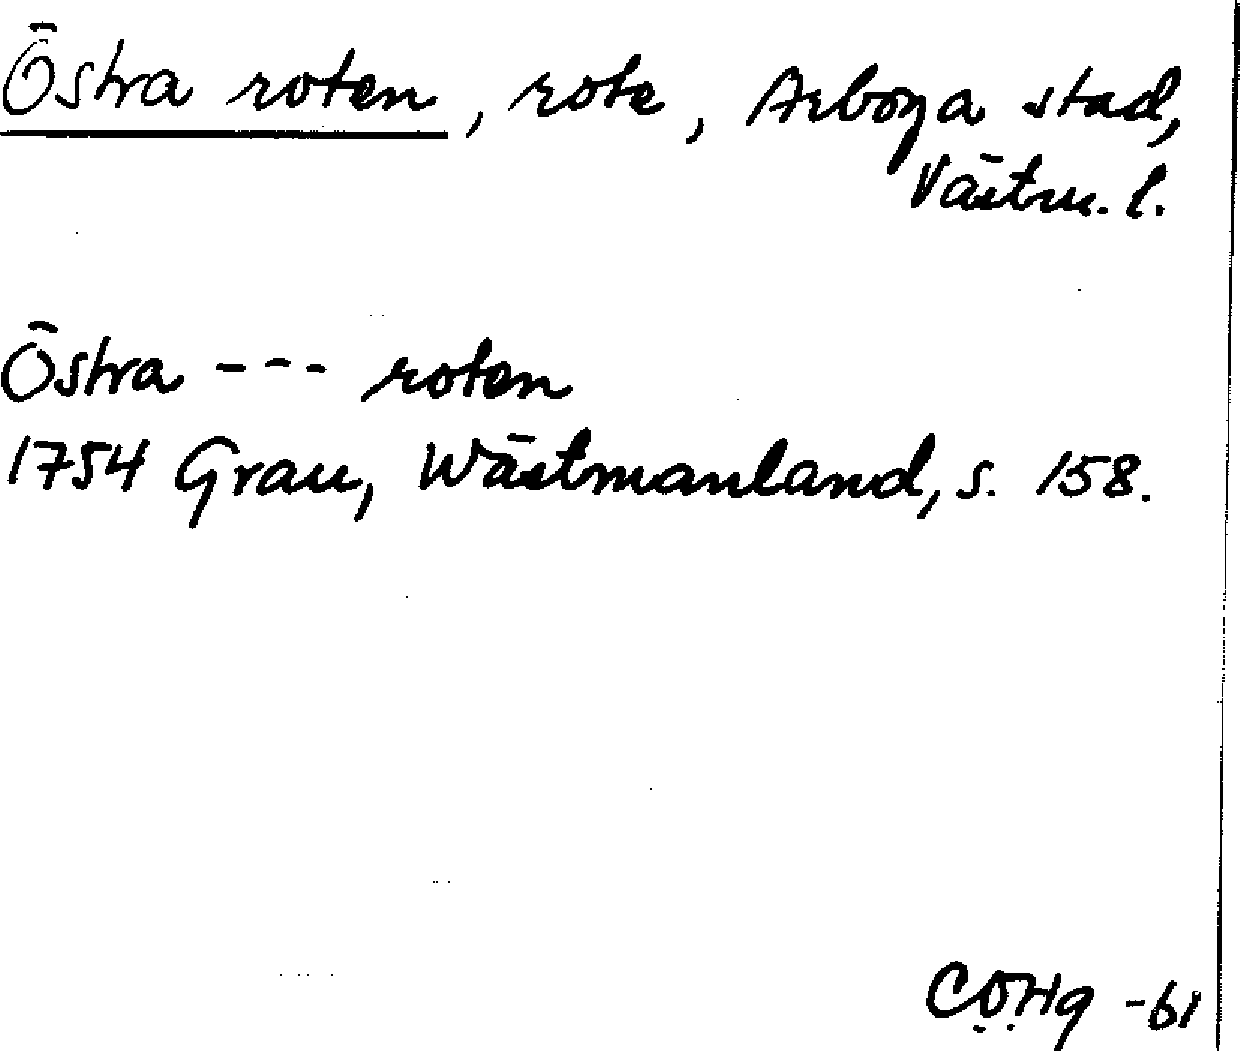 Östra roten, rote, Arboga stad,
Västm. l.
Östra --- roten
1754 Grau, Wästmanland, s. 158.
-61